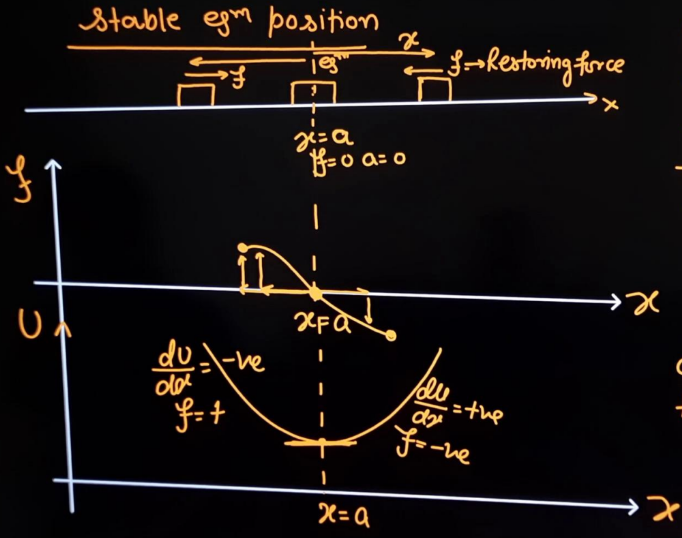 Stable eqm position
x
eqm
f
f→Restoring force
x
x=a
f=0 a=0
f
x
x=a
U
du/dx = -ve
f=+
du/dx = +ve
f=-ve
x
x=a